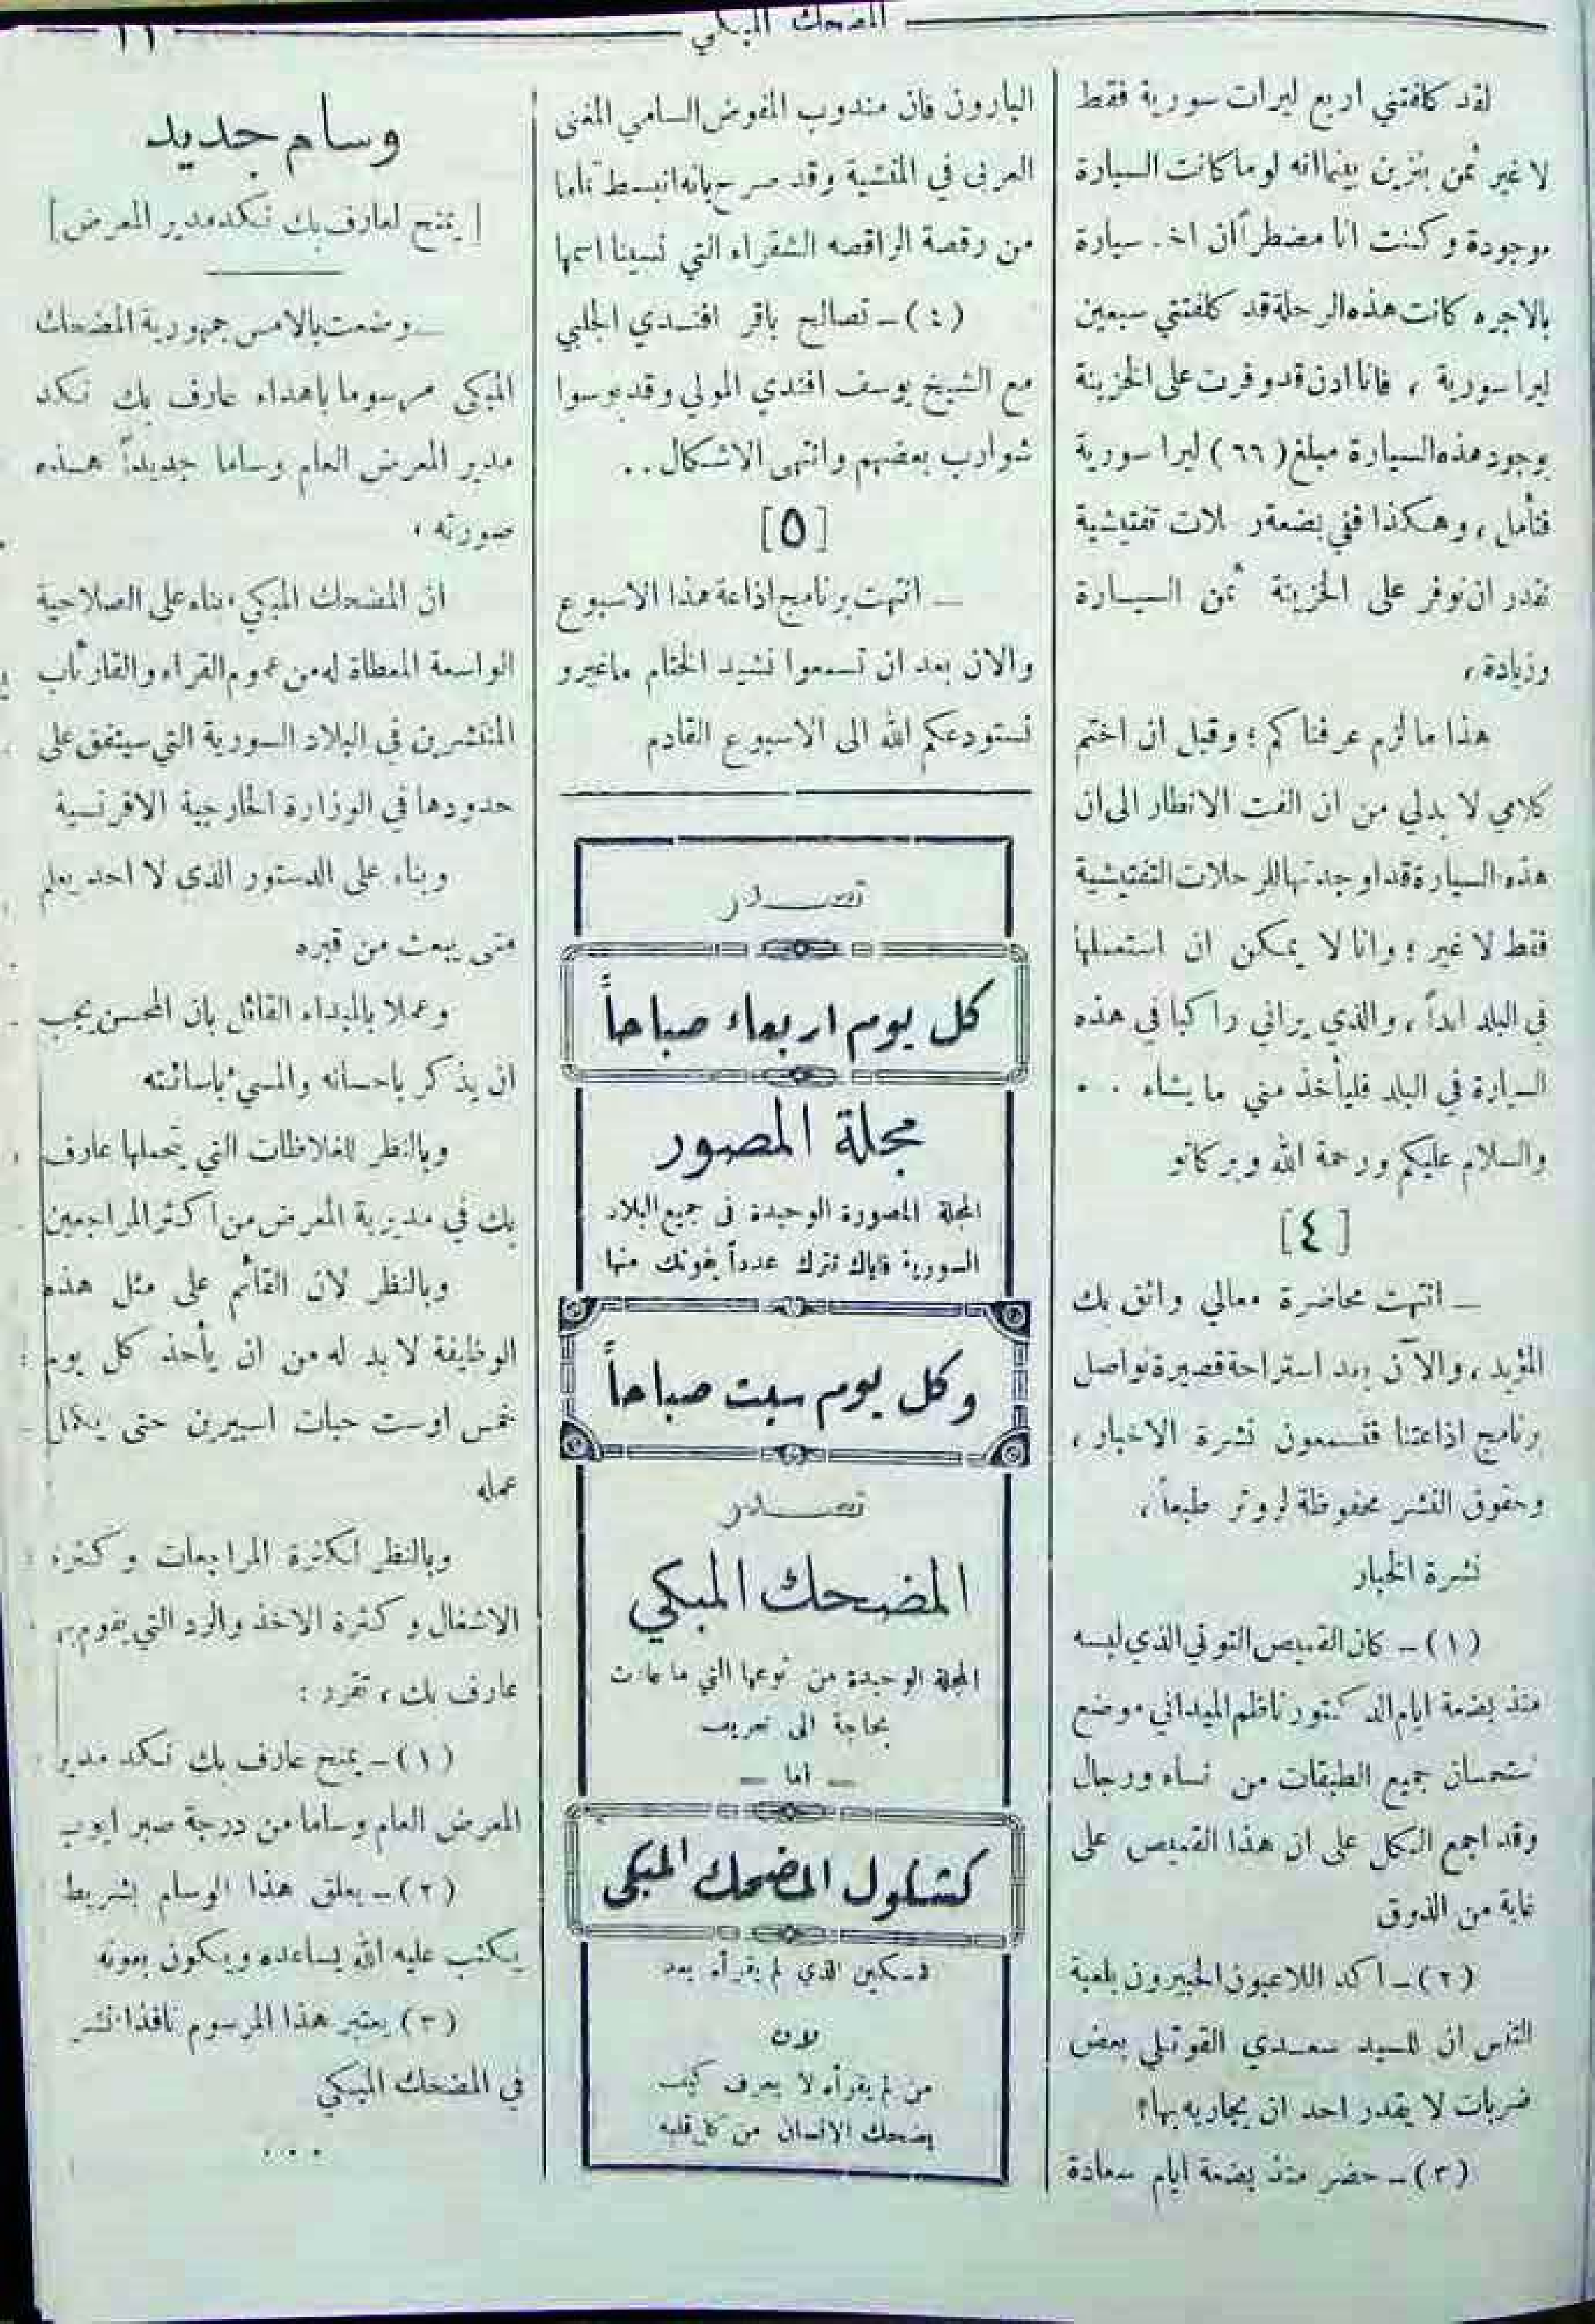 المضحك المبكي
١١
لقد كلفتني اربع ليرات سورية فقط
لا غير ثمن بنزين بينما انه لو ما كانت السيارة
موجودة وكنت انا مضطراً ان اخذ سيارة
بالاجره كانت هذه الرحلة قد كلفتني سبعين
ليرا سورية ، فانا اذن قد وفرت على الخزينة
بوجود هذه السيارة مبلغ (٦٦) ليرا سورية
فتأمل ، وهكذا ففي بضعة رحلات تفتيشية
نقدر ان نوفر على الخزينة ثمن السيارة
وزيادة ،
هذا ما لزم عرفناكم ؛ وقبل ان اختم
كلامي لا بد لي من ان الفت الانظار الى ان
هذه السيارة قد اوجدتها للرحلات التفتيشية
فقط لا غير ؛ وانا لا يمكن ان استعملها
في البلد ابداً ، والذي يراني راكبا في هذه
السيارة في البلد فليأخذ مني ما يشاء . .
والسلام عليكم ورحمة الله وبركاتو
[٤]
— انتهت محاضرة معالي واثق بك
المؤيد ، والآن بعد استراحة قصيرة نواصل
برنامج اذاعتنا فتسمعون نشرة الاخبار ،
وحقوق النشر محفوظة لروتر طبعاً ،
نشرة الخبار
(١) — كان القميص التوتي الذي لبسه
منذ بضعة ايام الدكتور ناظم الميداني موضع
ستحسان جميع الطبقات من نساء ورجال
وقد اجمع الكل على ان هذا القميص على
غاية من الذوق
(٢) — اكد اللاعبون الخبيرون بلعبة
التنس ان للسيد سعدي القوتلي بعض
ضربات لا يقدر احد ان يجاريه بها؟
(٣) — حضر منذ بضعة ايام سعادة
البارون فان مندوب المفوض السامي المغنى
العربي في المنشية وقد صرح بانه انبسط تماما
من رقصة الراقصه الشقراء التي نسينا اسمها
(٤) — تصالح باقر افندي الجلبي
مع الشيخ يوسف افندي المولي وقد بوسوا
شوارب بعضهم وانتهى الاشكال . .
[٥]
— انتهت برنامج اذاعة هذا الاسبوع
والان بعد ان تسمعوا نشيد الختام ماغيرو
نستودعكم الله الى الاسبوع القادم
تصدر
كل يوم اربعاء صباحاً
مجلة المصور
المجلة المصورة الوحيدة في جميع البلاد
السورية فاياك تترك عدداً يفوتك منها
وكل يوم سبت صباحاً
تصدر
المضحك المبكي
المجلة الوحيدة من نوعها التي ما عادت
بحاجة الى تعريف
— اما —
كشكول المضحك المبكي
فمسكين الذي لم يقرأه بعد
لان
من لم يقرأه لا يعرف كيف
يضحك الانسان من كل قلبه
وسام جديد
[ يمنح لعارف بك نكد مدير المعرض ]
— وضعت بالامس جمهورية المضحك
المبكي مرسوما باهداء عارف بك نكد
مدير المعرض العام وساما جديداً هذه
صورته ،
ان المضحك المبكي ، بناء على الصلاحية
الواسعة المعطاة له من عموم القراء والقارئات
المنتشرين في البلاد السورية التي سيتفق على
حدودها في الوزارة الخارجية الافرنسية
وبناء على الدستور الذي لا احد يعلم
متى يبعث من قبره
وعملا بالمبداء القائل بان المحسن يجب
ان يذكر باحسانه والمسيء باسائته
وبالنظر للغلاظات التي يتحملها عارف
بك في مديرية المعرض من اكثر المراجعين
وبالنظر لان القائم على مثل هذه
الوظيفة لا بد له من ان يأخذ كل يوم
خمس اوست حبات اسبيرين حتى يكمل
عمله
وبالنظر لكثرة المراجعات وكثرة
الاشغال وكثرة الاخذ والرد التي يقوم بها
عارف بك ، تقرر :
(١) — يمنح عارف بك نكد مدير
المعرض العام وساما من درجة صبر ايوب
(٢) — يعلق هذا الوسام بشريط
يكتب عليه الله يساعده ويكون بعونه
(٣) يعتبر هذا المرسوم نافذا نشر
في المضحك المبكي
. . .